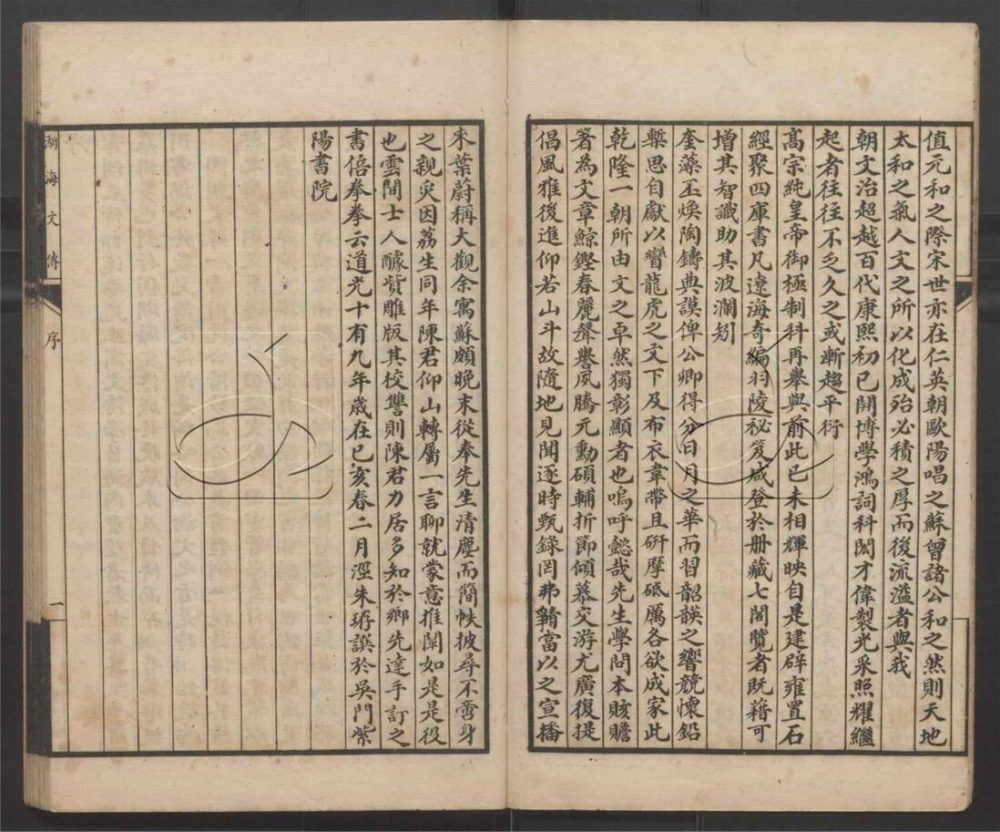 值元和之際宋世亦在仁英朝歐陽唱之蘇曾諸公和之然則天地
太和之氣人文之所以化成殆必積之厚而後流溢者與我
朝文治超越百代康熙初已開博學鴻詞科閎才偉製光采照耀繼
起者往往不乏久之或漸趨平衍
高宗純皇帝御極制科再舉與前此己未相輝映自是建辟雍置石
經聚四庫書凡遼海奇編羽陵祕笈咸登於册藏七閣覽者既藉可
增其智識助其波瀾矧
奎藻丕煥陶鑄典謨俾公卿得分日月之華而習韶頀之響競懷鉛
槧思自獻以鸞龍虎之文下及布衣韋帶且硏摩砥厲各欲成家此
乾隆一朝所由文之卓然獨彰顯者也嗚呼懿哉先生學問本賅贍
著為文章鯨鏗春麗聲譽夙騰元勳碩輔折節傾慕交游尤廣復提
倡風雅後進仰若山斗故隨地見聞逐時甄錄罔弗精富以之宣播
宋葉蔚稱大觀余寓蘇頗晚未從奉先生清塵而簡帙披尋不啻身
之親炙因荔生同年陳君仰山轉屬一言聊就蒙意推闡如是是役
也雲間士人醵貲雕版其校讐則陳君力居多知於鄉先達手訂之
書倍拳拳云道光十有九年歲在己亥春二月涇朱珔譔於吳門紫
陽書院
湖海文傳
序
一